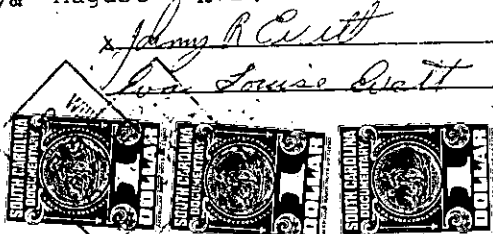 August
x Johnny R Evatt
Eva Louise Evatt
SOUTH CAROLINA DOCUMENTARY DOLLAR
SOUTH CAROLINA DOCUMENTARY DOLLAR
SOUTH CAROLINA DOCUMENTARY DOLLAR